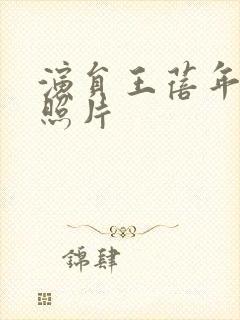 演員王蓓年
照片
錦肆